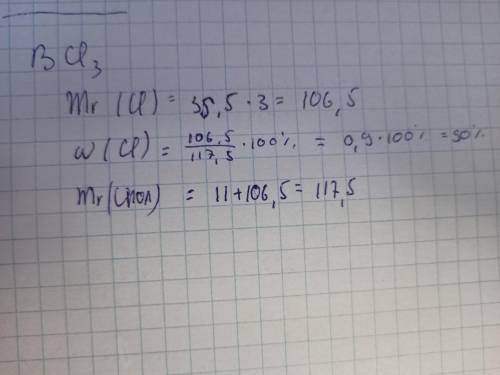 BCl₃
Mr (Cl) = 35,5 · 3 = 106,5
ω (Cl) = 106,5/117,5 · 100% = 0,9 · 100% = 90%
Mr (мол) = 11 + 106,5 = 117,5